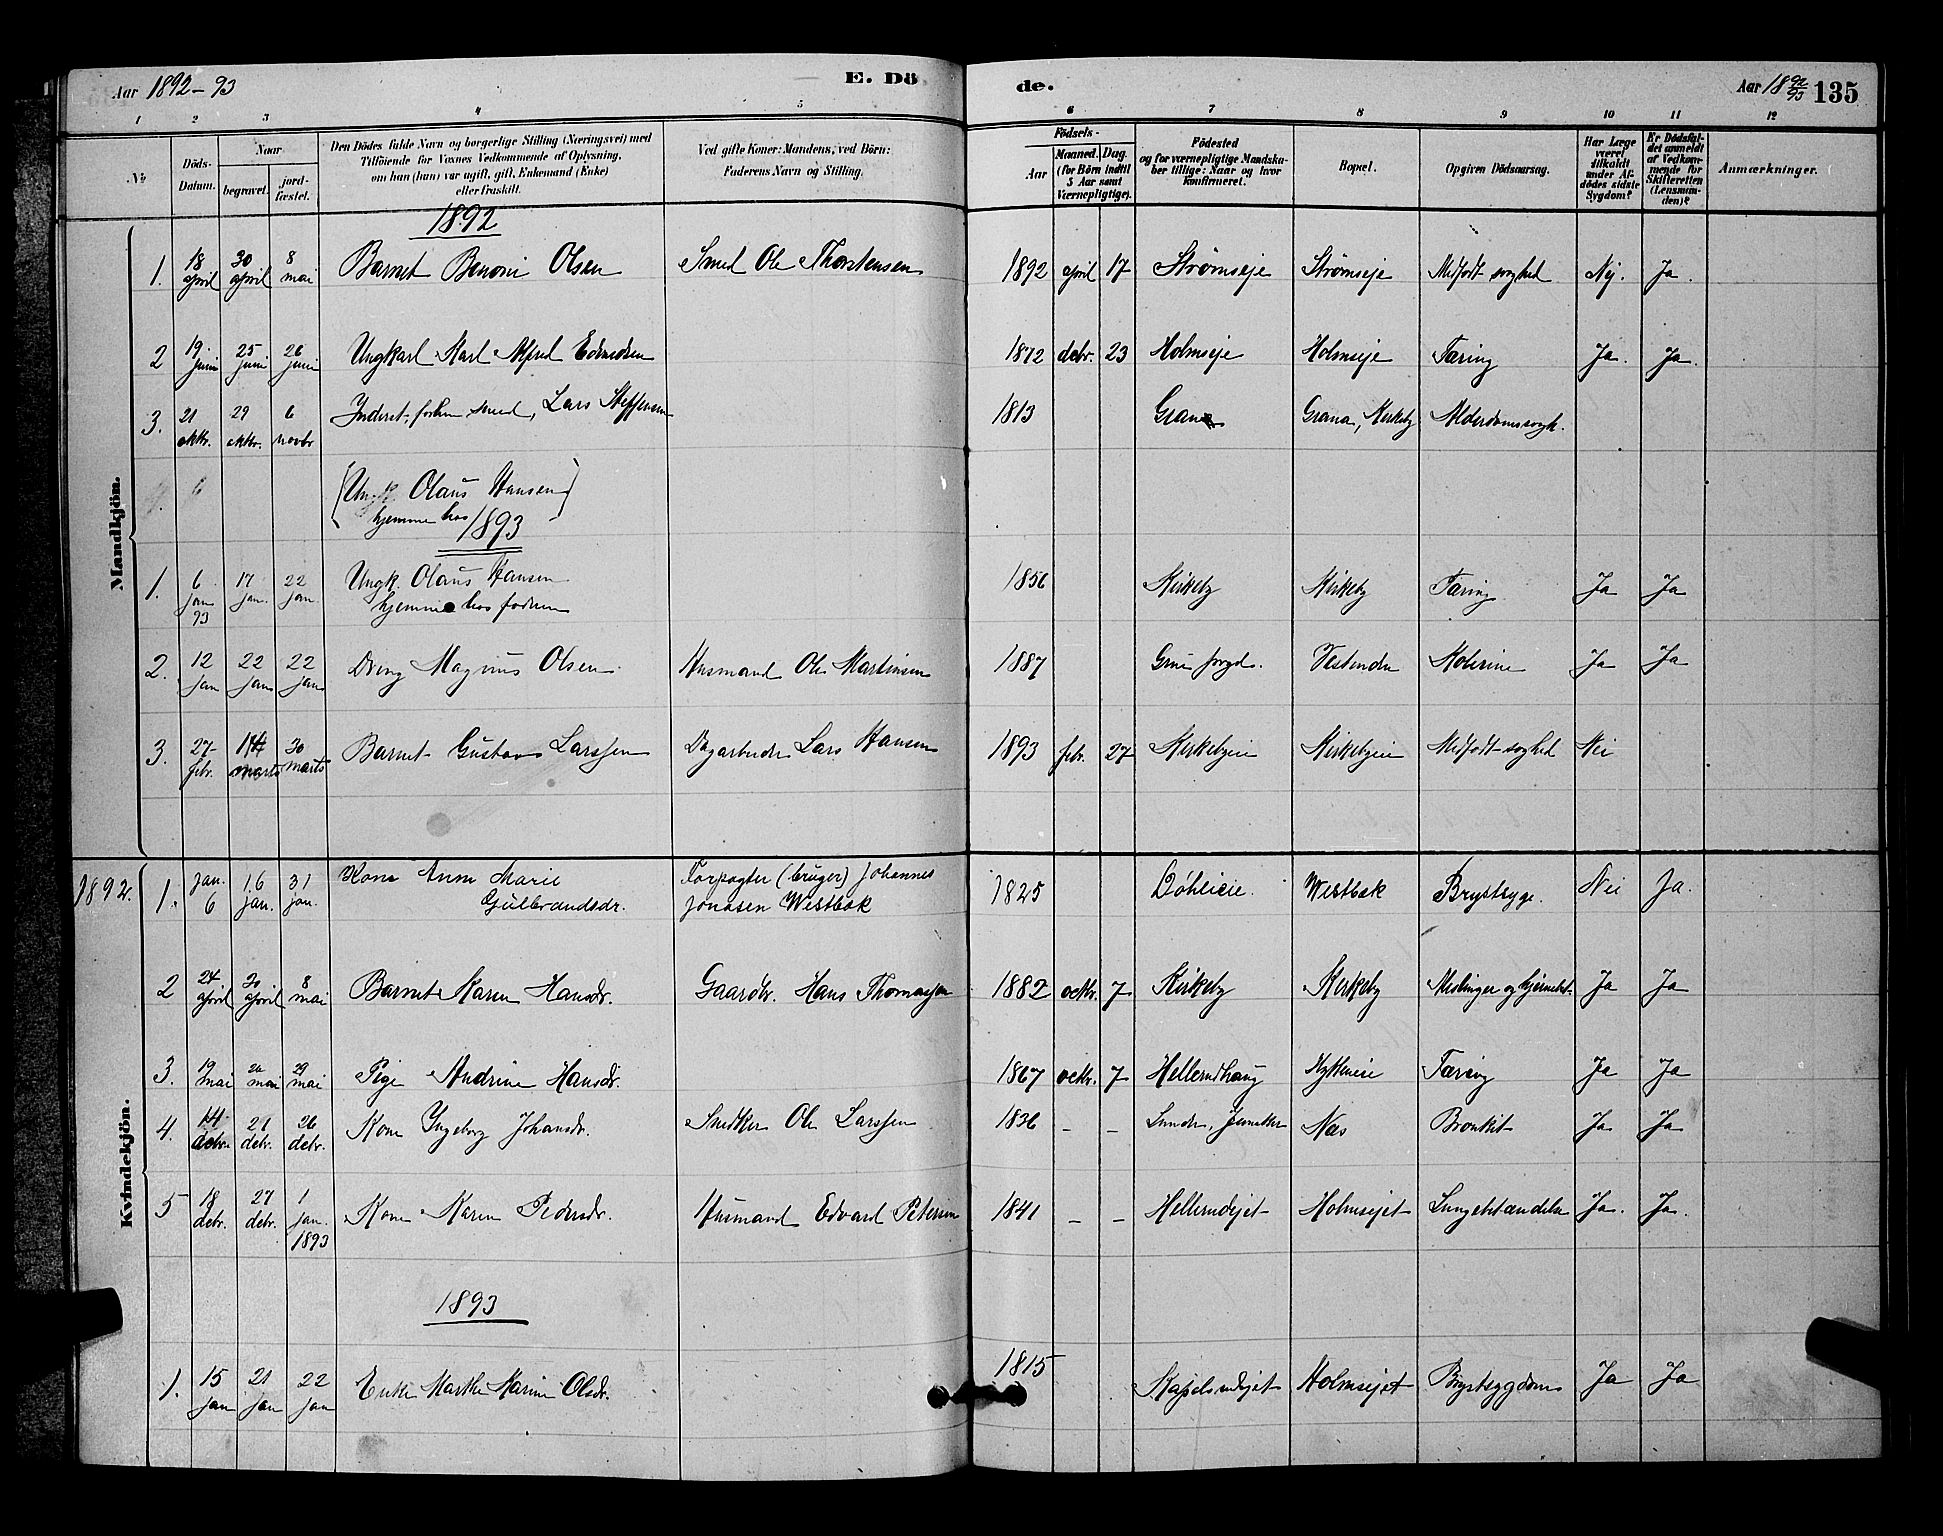 Aar 1892-93
E. Dö
de.
Aar 18 92/93 135
1 2 3 4 5 6 7 8 9 10 11 12
No
Döds-Datum.
Naar
begravet.
jord-fæstet.
Den Dödes fulde Navn og borgerlige Stilling (Næringsvei) med
Tilföiende for Voxnes Vedkommende af Oplysning,
om han (hun) var ugift, gift, Enkemand (Enke)
eller fraskilt.
Ved gifte Koner: Mandens, ved Börn:
Faderens Navn og Stilling.
Födsels-
Aar
Maaned. Dag.
(for Börn indtil
5 Aar samt
Værnepligtige).
Födested
og for værnepligtige Mandska-
ber tillige: Naar og hvor
konfirmeret.
Bopæl.
Opgiven Dödsaarsag.
Har Læge
været
tilkaldt
under Af-
dödes sidste
Sygdom?
Er Dödsfal-
det anmeldt
af Vedkom-
mende for
Skifteretten
(Lensman-
den)?
Anmærkninger.
Mandkjön.
1892
1. 18 april 30 april 8 mai Barnet Benoni Olsen Smed Ole Thorstensen 1892 april 17 Strømseje Strømseje Medfødt svaghed Nej. Ja.
2 19 juni 25 juni 26 juni Ungkarl Karl Alfred Edvardsen 1872 debr. 23 Holmseje Holmseje Tæring Ja. Ja.
3. 21 oktbr. 29 oktbr. 6 novbr Inderst, forhen smed, Lars Steffensen 1813 Grana Grana, Kirkeby Alderdomssvagh.
6 (Ungk. Olaus Hansen)
hjemme hos
1893
1. 6 jan 93 17 jan. 22 jan Ungk. Olaus Hansen 1856 Kirkeby Kirkeby Tæring Ja Ja
hjemme hos fadren
2. 12 jan 22 jan 22 jan Dreng Magnus Olsen Husmand Ole Martinsen 1887 Grue prgd. Ja Ja
3. 27 febr. 14 marts 30 marts Barnet Gustav Larssen Dagarbeider Lars Hansen 1893 febr. 27 Kirkebyeie Kirkebyeie Medfødt svaghed Nei
Kvindekjön.
1892.
1. jan. 6 16 jan. 31 jan. Kone Anne Marie Forpagter (bruger) Johannes 1825 Döhlieie. Westbæk Brystsyge. Nei Ja.
Gulbrandsdr. Jonasen Westbæk
2 24 april 30 april 8 mai Barnet Karen Hansdr. Gaardbr. Hans Thomassen 1882 octbr. 7 Kirkeby Kirkeby Ja Ja
3. 19 mai 26 mai 29 mai Pige Andrine Hansdr. 1867 octbr. 7 Hellerudhaug Hytteneie Tæring Ja Ja
4. 14 debr. 21 debr. 26 debr. Kone Ingeborg Johansdr. Snedker Ole Larssen 1836 - - Næs Bronkit Ja Ja
5 18 debr. 27 debr. 1 jan. 1893 Kone Karen Pedersdr. Husmand Edvard Petersen 1841 - - Hellerudejet Holmsejet Lungebetændelse Ja. Ja.
1893
1. 15 jan 21 jan 22 jan Enke Marthe Karine Olsdr. 1815 Kapelsrudejet Holmsejet Brystsygdom Ja Ja